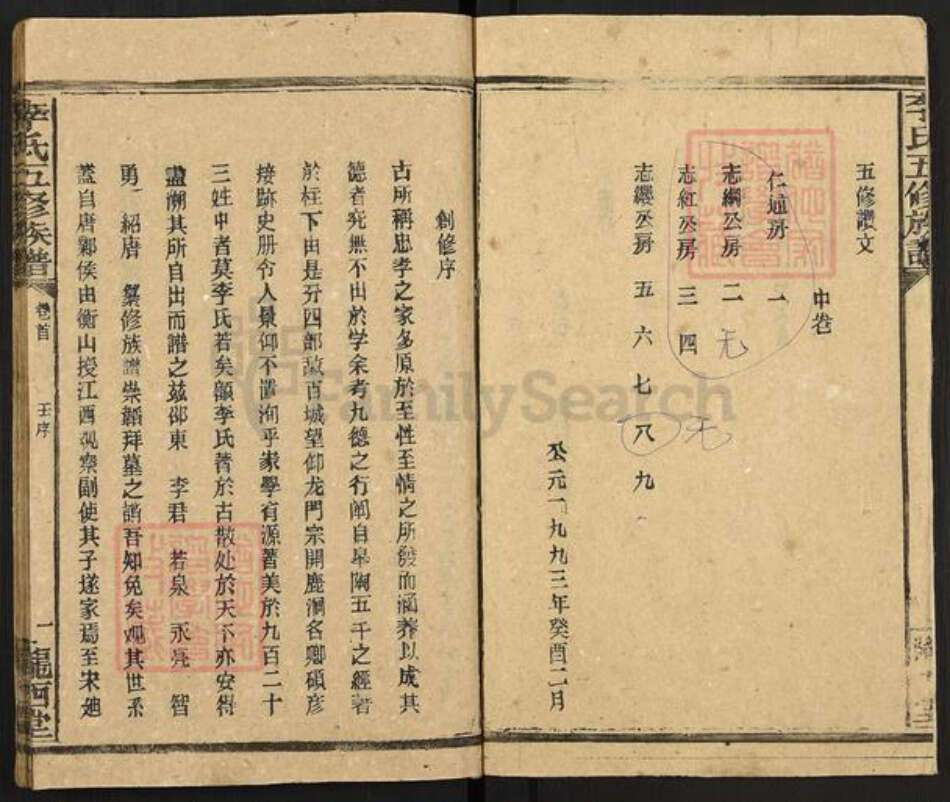 李氏五修族譜
五修讚文
中卷
仁通房 一
志綱公房 二 无
志紅公房 三 四
志纓公房 五 六 七 八 九
无
公元一九九三年癸酉二月
創修序
古所稱忠孝之家多原於至性至情之所發而涵养以成其
德者究無不出於学余考九德之行闡自皋陶五千之經著
於柱下由是分四部 百城望仰龙門宗開鹿洞名卿碩彥
接跡史册令人景仰不遑洵乎家學有源著美於九百二十
三姓中者莫李氏若矣顧李氏著於古散处於天下亦安得
盡溯其所自出而譜之兹邵東 李君 若泉 永亮 智
勇 紹唐 纂修族譜崇韜拜墓之誚吾知免矣观其世系
蓋自唐鄴侯由衡山授江西观察副使其子遂家焉至宋廸
李氏五修族譜
卷首
王序
一
隴西堂
FamilySearch